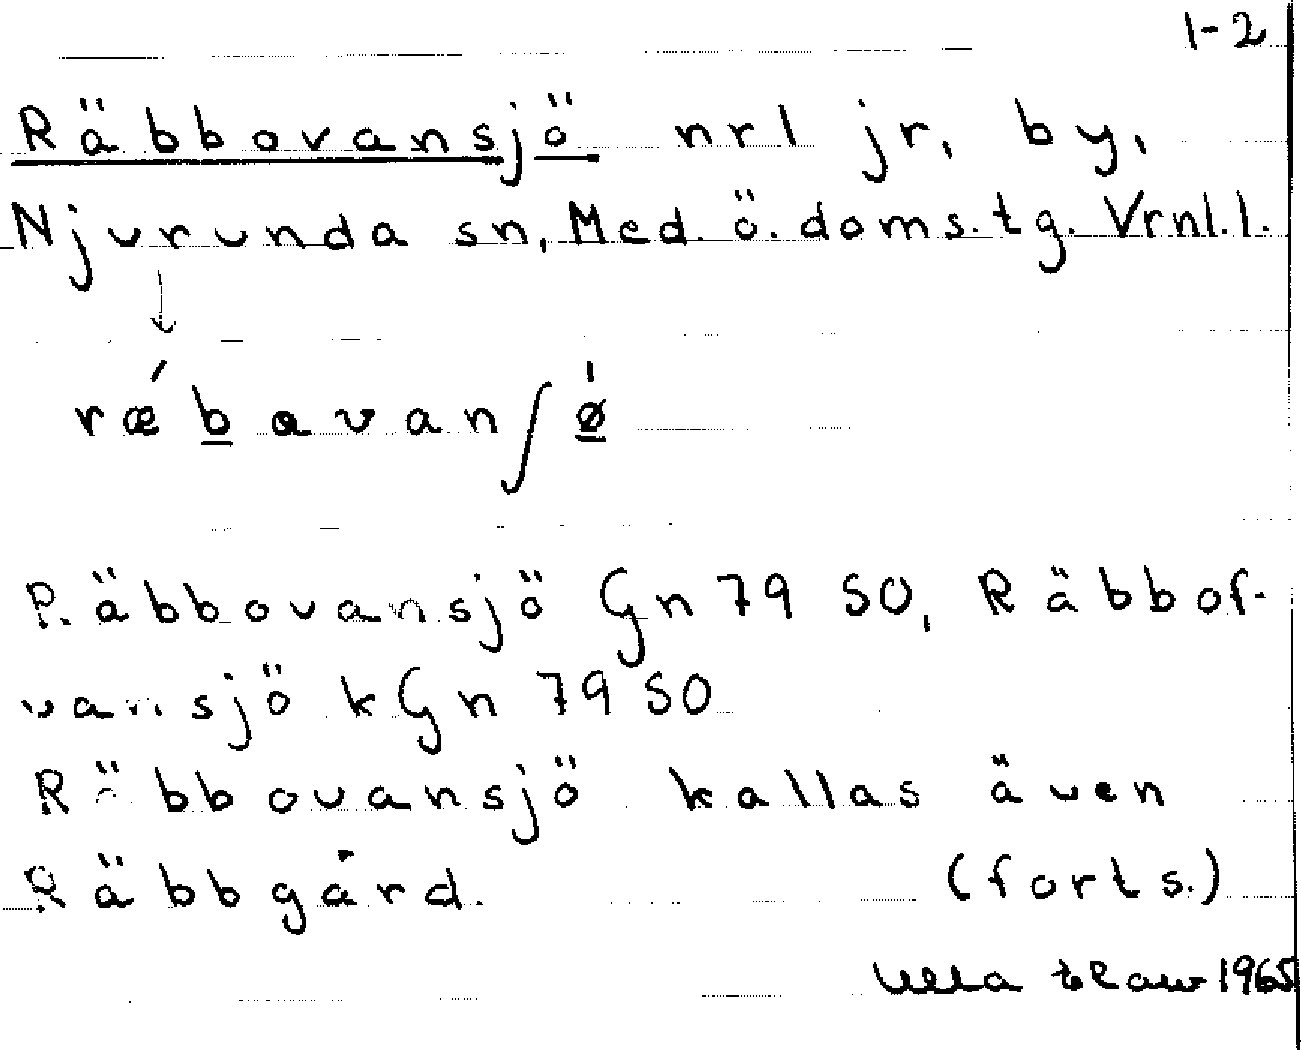 1-2
Räbbovansjö nrl jr, by,
Njurunda sn, Med. ö. doms.tg. Vrnl.l.
↓
rǽb̲avanʃǿ̲
Räbbovansjö Gn 79 SO, Räbbof-
vansjö kGn 79 SO
Räbbovansjö kallas även
Räbbgård.
(forts.)
Ulla 1965